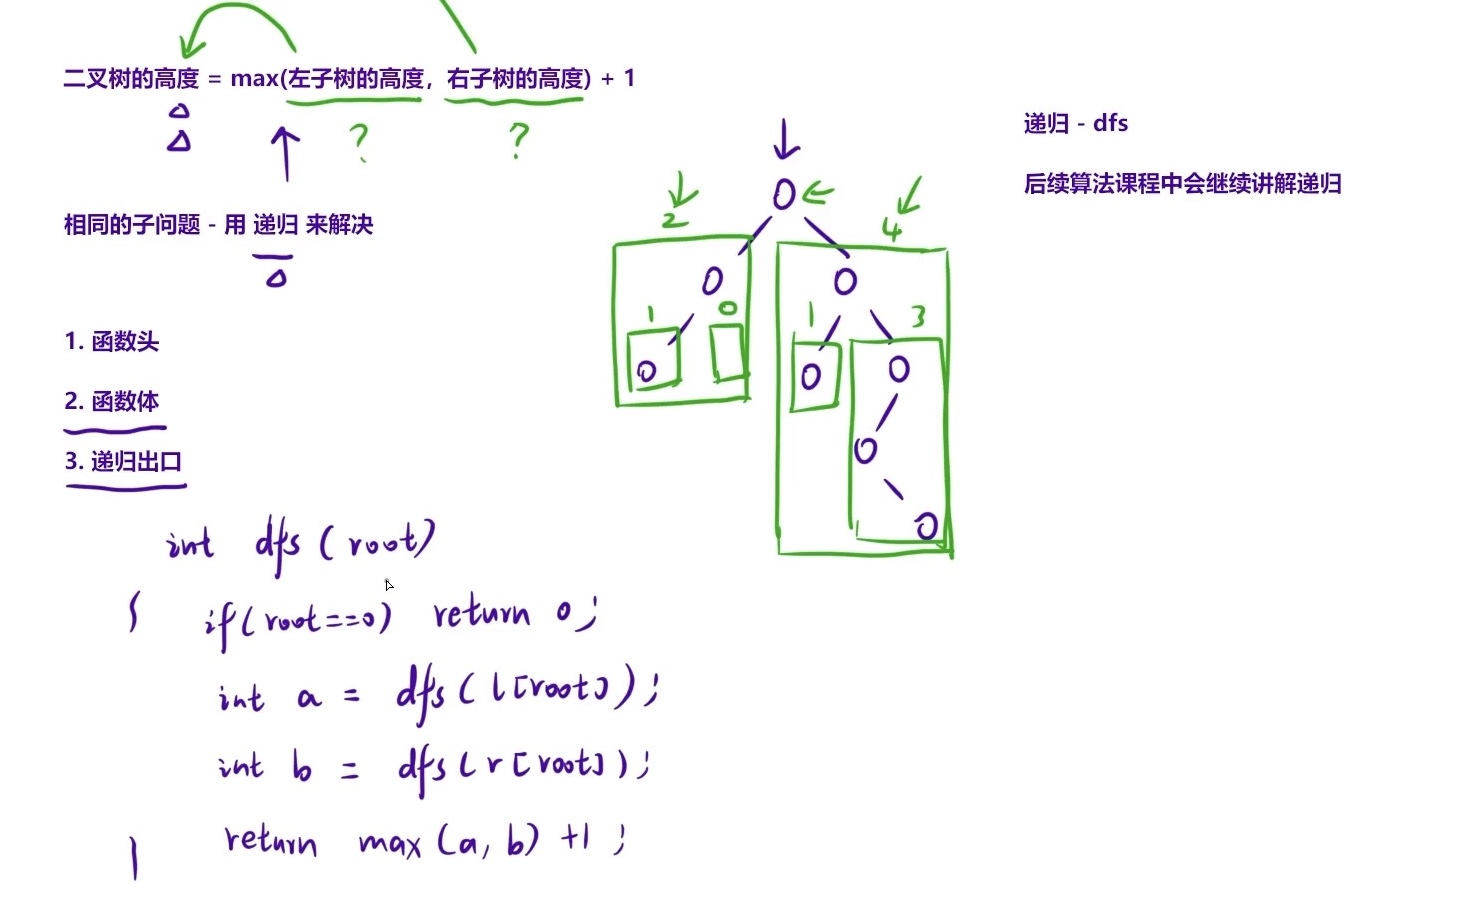 二叉树的高度 = max(左子树的高度，右子树的高度) + 1
? ?
递归 - dfs
后续算法课程中会继续讲解递归
相同的子问题 - 用 递归 来解决
2 4
1 0 1 3
1. 函数头
2. 函数体
3. 递归出口
int dfs (root)
{ if(root==0) return 0;
int a = dfs(l[root]);
int b = dfs(r[root]);
return max(a, b) +1;